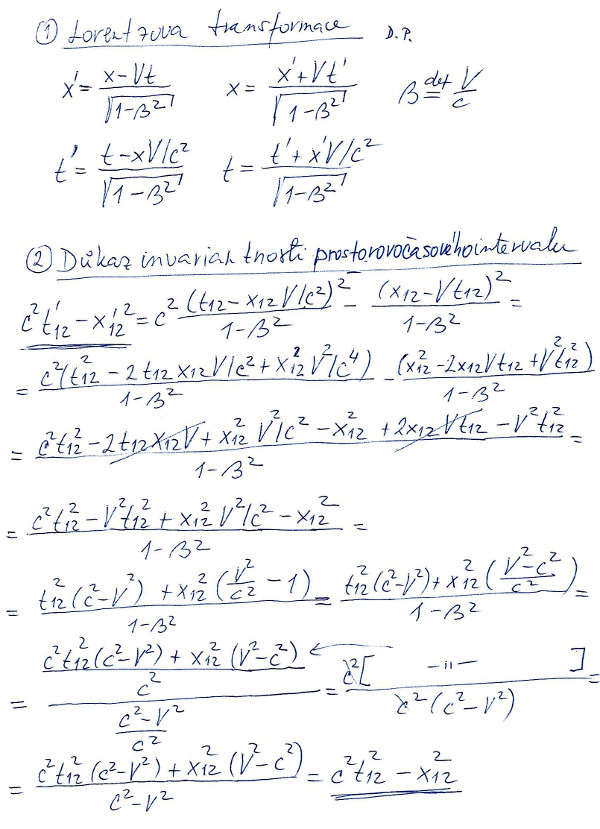 ① Lorentzova transformace D.P.
x' = (x-Vt)/√(1-β²) x = (x'+Vt')/√(1-β²) β def= V/c
t' = (t-xV/c²)/√(1-β²) t = (t'+x'V/c²)/√(1-β²)
② Důkaz invariantnosti prostorovočasového intervalu
c²t₁₂'² - x₁₂'² = c² (t₁₂-x₁₂V/c²)²/(1-β²) - (x₁₂-Vt₁₂)²/(1-β²) =
= c²(t₁₂² - 2t₁₂x₁₂V/c² + x₁₂²V²/c⁴)/(1-β²) - (x₁₂² - 2x₁₂Vt₁₂ + V²t₁₂²)/(1-β²)
= (c²t₁₂² - 2t₁₂x₁₂V + x₁₂²V²/c² - x₁₂² + 2x₁₂Vt₁₂ - V²t₁₂²)/(1-β²) =
= (c²t₁₂² - V²t₁₂² + x₁₂²V²/c² - x₁₂²)/(1-β²) =
= (t₁₂²(c²-V²) + x₁₂²(V²/c² - 1))/(1-β²) = (t₁₂²(c²-V²) + x₁₂²((V²-c²)/c²))/(1-β²) =
= ((c²t₁₂²(c²-V²) + x₁₂²(V²-c²))/c²)/((c²-V²)/c²) = c²[ -〃- ]/(c²(c²-V²)) =
= (c²t₁₂²(c²-V²) + x₁₂²(V²-c²))/(c²-V²) = c²t₁₂² - x₁₂²